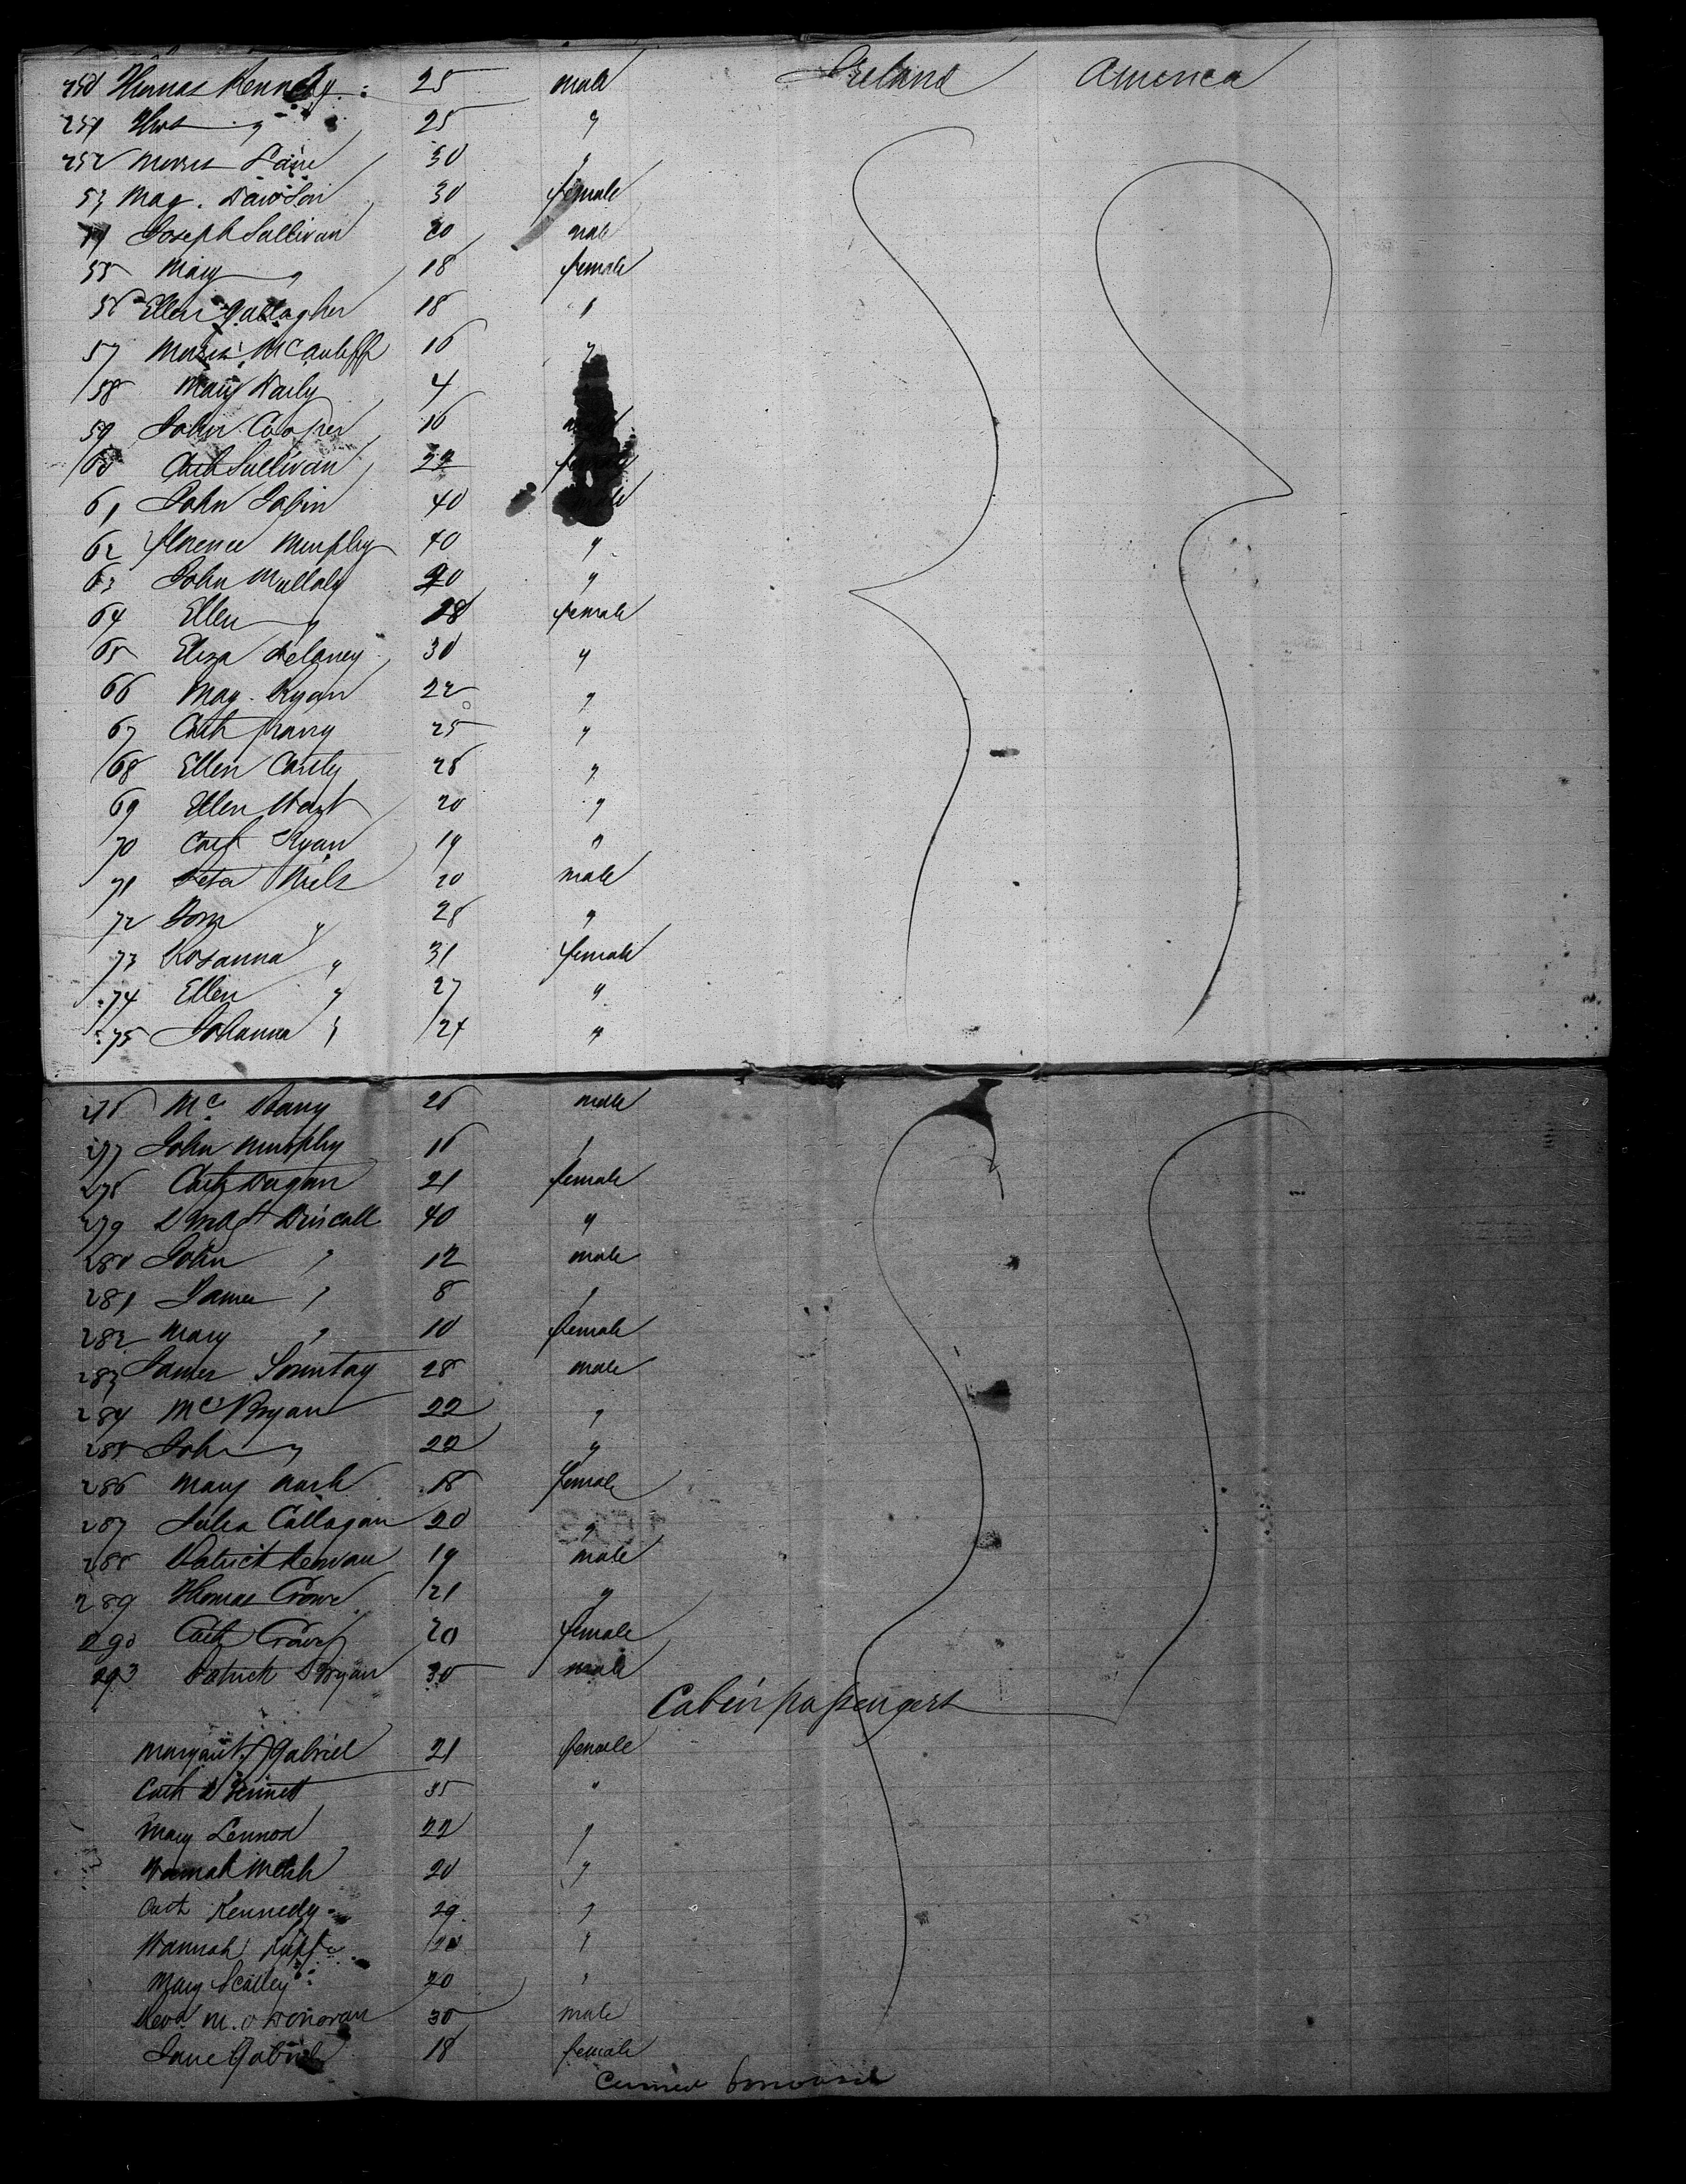 250 Thomas Kennedy 25 male Ireland America
251 Thos " 25 "
252 Morris Lane 30 "
53 Mag. Dawson 30 female
54 Joseph Sullivan 20 male
55 Mary " 18 female
56 Ellen Gallagher 18 "
57 McAuliff 16 "
58 Mary Daily 4
59 John Cooper 16
60 Cath Sullivan 22 female
61 John Tobin 40 male
62 Florence Murphy 40 "
63 John Mullaly 20 "
64 Ellen " 18 female
65 Eliza Delaney 30 "
66 Mag. Ryan 22 "
67 Cath 25 "
68 Ellen Canty 26 "
69 Ellen 20 "
70 Cath Ryan 19 "
71 20 male
72 " 28 "
73 Rosanna " 31 female
74 Ellen " 27 "
75 Johanna " 24 "
276 Mc 26 male
277 John Murphy 16 "
278 Cath Dugan 21 female
279 Driscall 40 "
280 John " 12 male
281 James " 8 "
282 Mary " 10 female
283 James 28 male
284 Mc Bryan 22 "
285 John " 22 "
286 Mary Nash 18 female
287 Julia Callagan 20 "
288 Patrick 19 male
289 Thomas Crowe 21 "
290 Cath Crowe 20 female
293 Patrick 30 male
Cabin passengers
Margaret Gabriel 21 female
Cath 35 "
Mary Lennox 22 "
Hannah Welsh 20 "
Cath Kennedy 29 "
Hannah 20 "
Mary Scalley 20 "
Revd M. O Donovan 30 male
Jane Gabriel 18 female